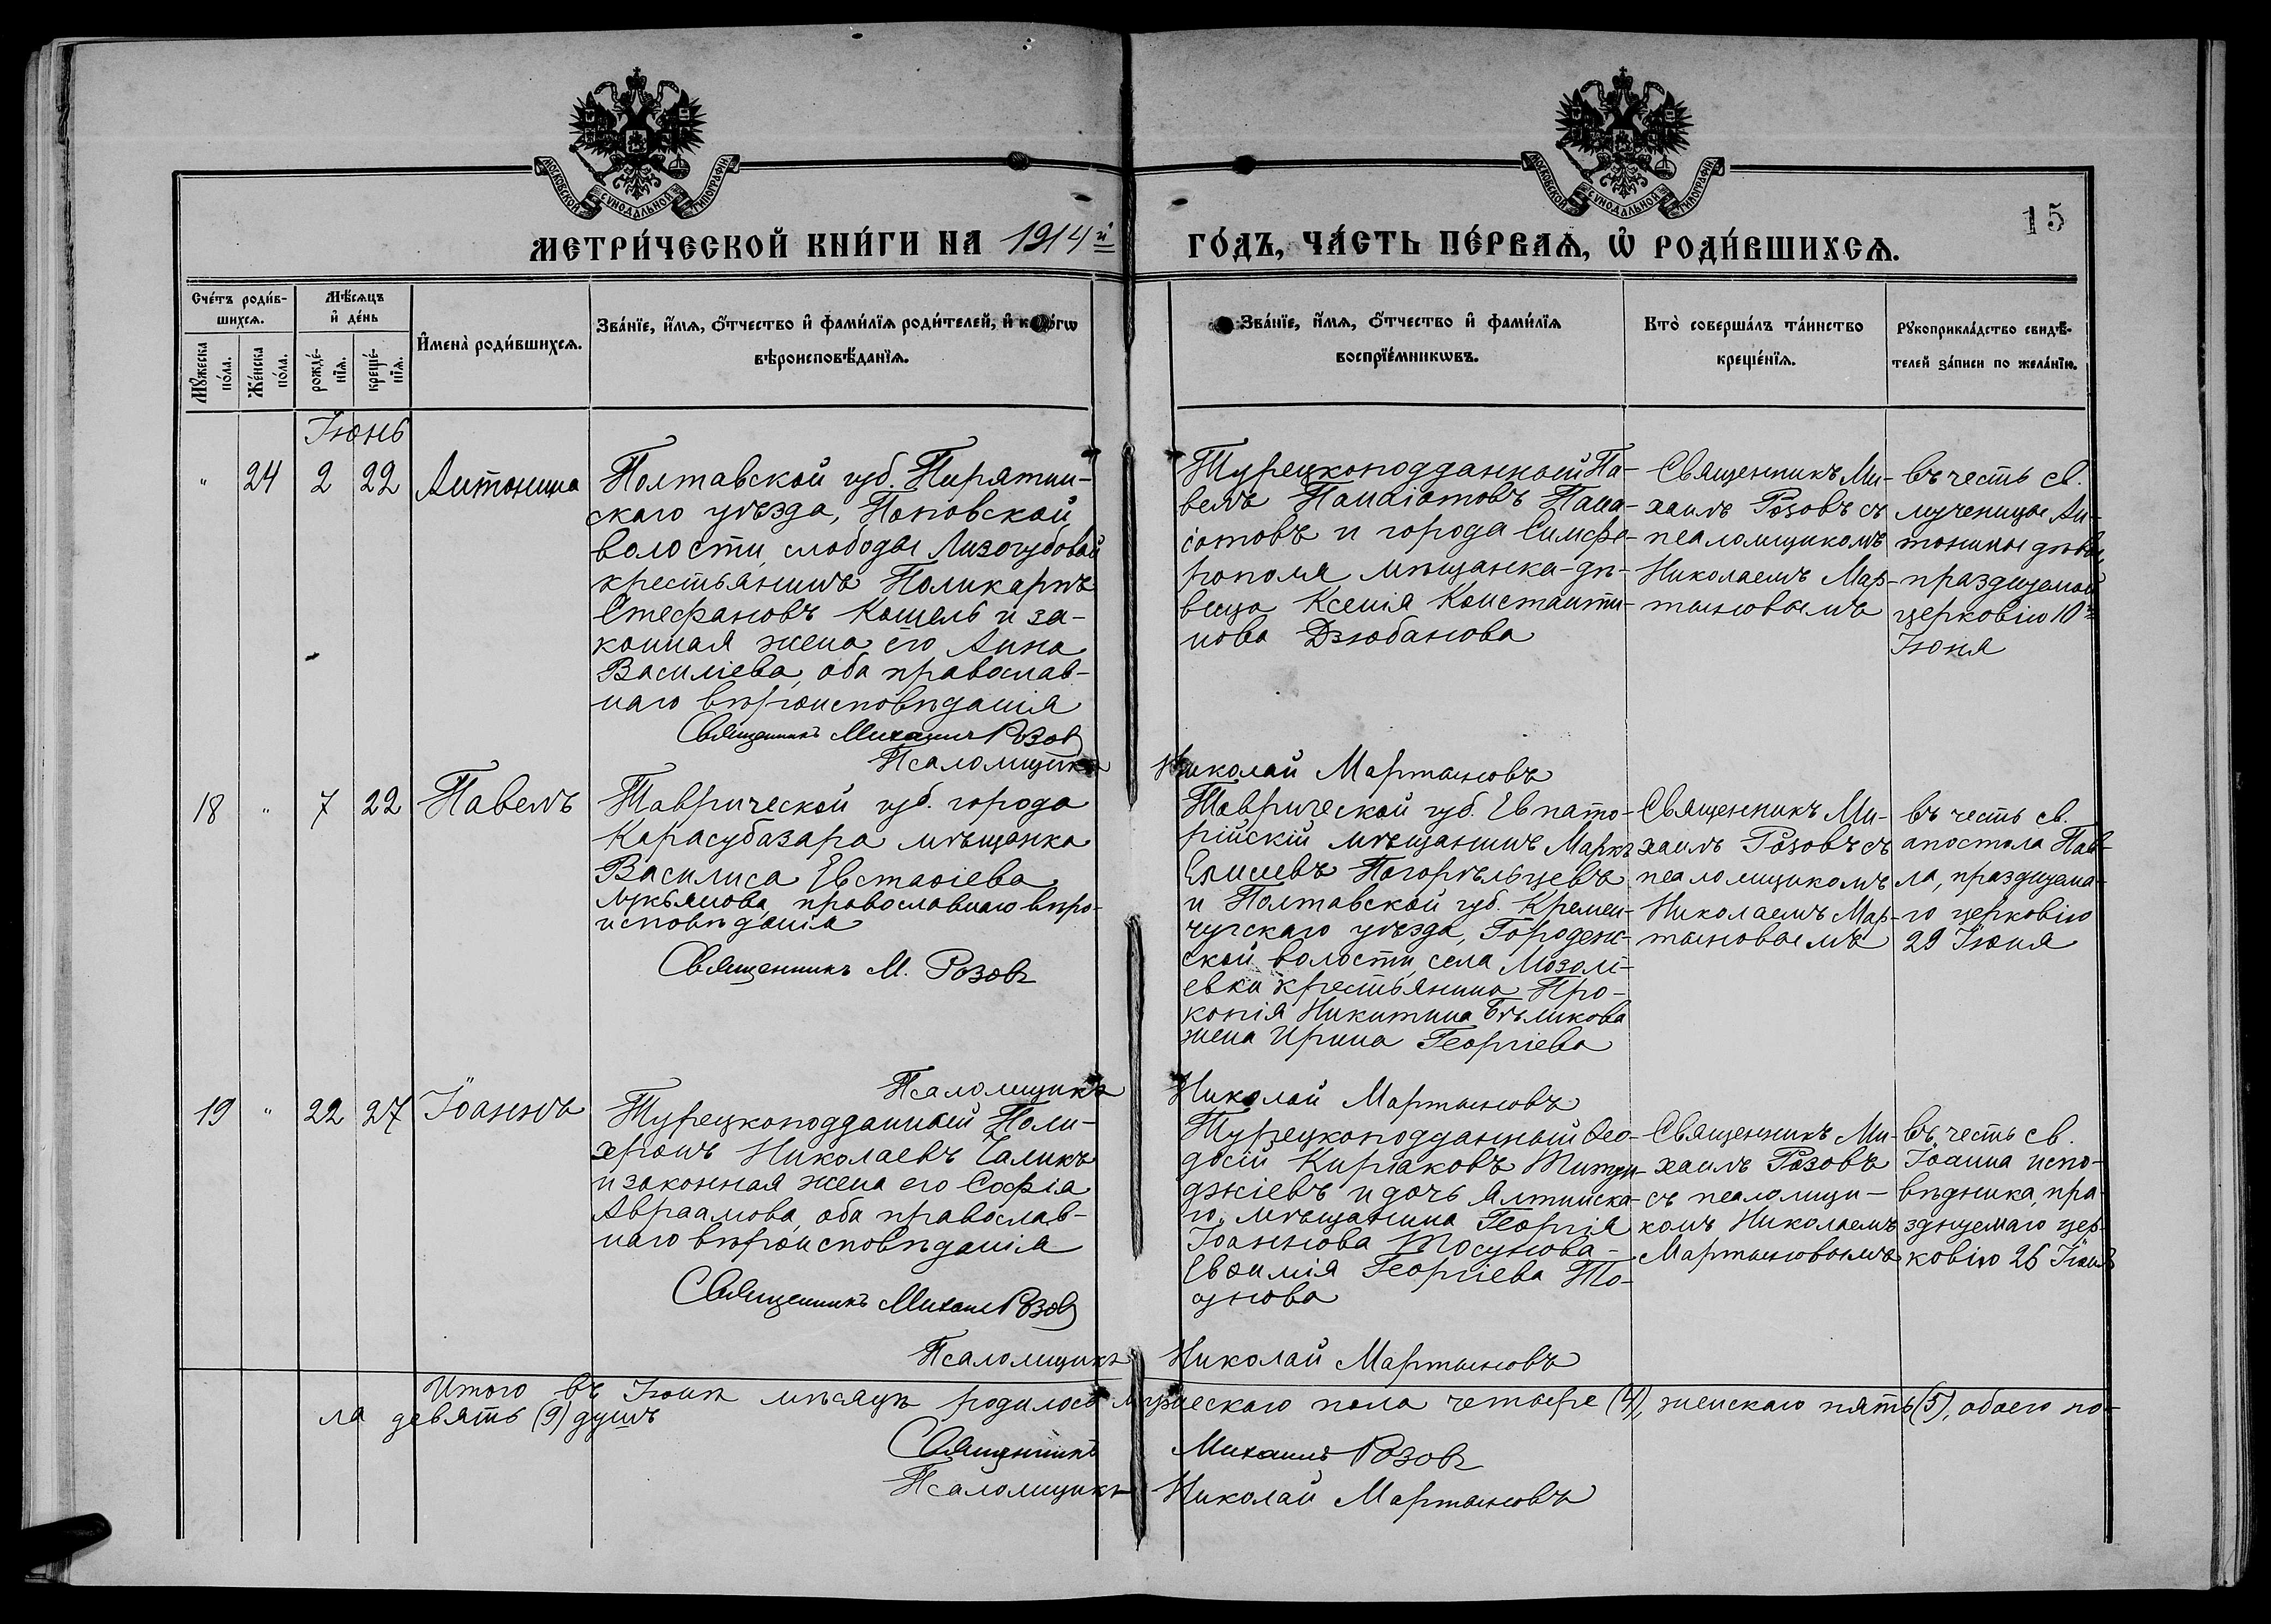 МОСКОВСКОЙ СѴНОДАЛЬНОЙ ТИПОГРАФІИ
МОСКОВСКОЙ СѴНОДАЛЬНОЙ ТИПОГРАФІИ
15
МЕТРИ́ЧЕСКОЙ КНИ́ГИ НА 1914й ГО́ДЪ, ЧА́СТЬ ПЕ́РВАѦ, Ѡ҆ РОДИ́ВШИХСѦ.
Сче́тъ роди́в-
шихсѧ.
Мѣ́сѧцъ
и҆ де́нь
Мꙋ́жеска по́ла.
Же́нска по́ла.
рожде́-
нїѧ.
креще́-
нїѧ.
И҆мена̀ роди́вшихсѧ.
Зва́нїе, и҆́мѧ, ѻ҆́тчество и҆ фами́лїѧ роди́телей, и҆ ко́гѡ
вѣроисповѣ́данїѧ.
Зва́нїе, и҆́мѧ, ѻ҆́тчество и҆ фами́лїѧ
воспрїе́мникѡвъ.
Кто̀ соверша́лъ та́инство
креще́нїѧ.
Рꙋкоприкла́дство свидѣ́-
телей за́писи по жела́нїю.
Іюнь
" 24 2 22 Антонина
Полтавской губ. Пирятин-
скаго уѣзда, Поповской
волости, слободы Лизогубовой
крестьянинъ Поликарпъ
Стефановъ Кошель и за-
конная жена его Анна
Василіева, оба православ-
наго вѣроисповѣданія
Священникъ Михаилъ Розов
Псаломщикъ Николай Мартыновъ
Турецкоподданный Па-
велъ Панаіотовъ Пана-
іотовъ и города Симфе-
рополя мѣщанка-дѣ-
вица Ксенія Константи-
нова Дзюбанова
Священникъ Ми-
хаилъ Розовъ съ
псаломщикомъ
Николаемъ Мар-
тыновымъ
въ честь св.
мученицы Ан-
тонины дѣвы,
празднуемой
церковію 10го
Іюня
18 " 7 22 Павелъ
Таврической губ. города
Карасубазара мѣщанка
Василиса Евстаѳіева
Лукьянова, православнаго вѣро-
исповѣданія
Священникъ М. Розовъ
Псаломщикъ Николай Мартыновъ
Таврической губ. Евпато-
рійскій мѣщанинъ Маркъ
Елисеевъ Погорѣльцевъ
и Полтавской губ. Кремен-
чугскаго уѣзда, Городенс-
ской волости, села Мозолѣ-
евки крестьянина Про-
копія Никитина Бѣликова
жена Ирина Георгіева
Священникъ Ми-
хаилъ Розовъ съ
псаломщикомъ
Николаемъ Мар-
тыновымъ
въ честь св.
апостола Пав-
ла, празднуема-
го церковію
29 Іюня
19 " 22 27 Іоаннъ
Турецкоподданный Поли-
хронъ Николаевъ Чаликъ
и законная жена его Софія
Авраамова, оба православ-
наго вѣроисповѣданія
Священникъ Михаилъ Розов
Псаломщикъ Николай Мартыновъ
Турецкоподданный Ѳео-
досій Киріаковъ
и дочь Алтинска-
го мѣщанина Георгія
Іоаннова Тосунова -
Евѳимія Георгіева То-
сунова
Священникъ Ми-
хаилъ Розовъ
съ псаломщи-
комъ Николаемъ
Мартыновымъ
въ честь св.
Іоанна испо-
вѣдника, пра-
зднуемаго цер-
ковію 26 Іюня
Итого въ Іюнѣ мѣсяцѣ родилось мужескаго пола четыре (4), женскаго пять (5), обоего по-
ла девять (9) душъ
Священникъ Михаилъ Розовъ
Псаломщикъ Николай Мартыновъ